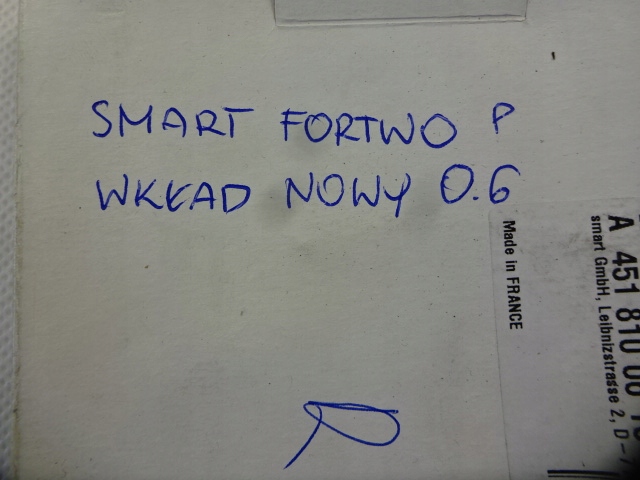 SMART FORTWO P
WKŁAD NOWY 0.6
Made in FRANCE
A 451 810 00
smart GmbH, Leibnizstrasse 2, D-